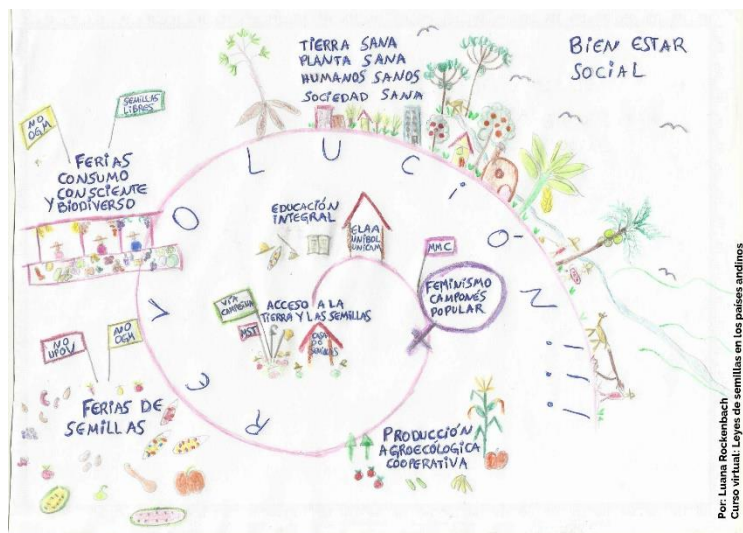 TIERRA SANA
PLANTA SANA
HUMANOS SANOS
SOCIEDAD SANA
BIEN ESTAR
SOCIAL
NO
OGM
SEMILLAS
LIBRES
FERIAS
CONSUMO
CONSCIENTE
Y BIODIVERSO
REVOLUCIÓN!!!
EDUCACIÓN
INTEGRAL
ELAA
UNIBOL
UNICAM
MMC
FEMINISMO
CAMPONÉS
POPULAR
VIA
CAMPESINA
MST
ACCESO A LA
TIERRA Y LAS SEMILLAS
CASA
DE
SEMILLAS
NO
UPOV
NO
OGM
FERIAS DE
SEMILLAS
PRODUCCIÓN
AGROECÓLOGICA
COOPERATIVA
Por: Luana Rockenbach
Curso virtual: Leyes de semillas en los países andinos